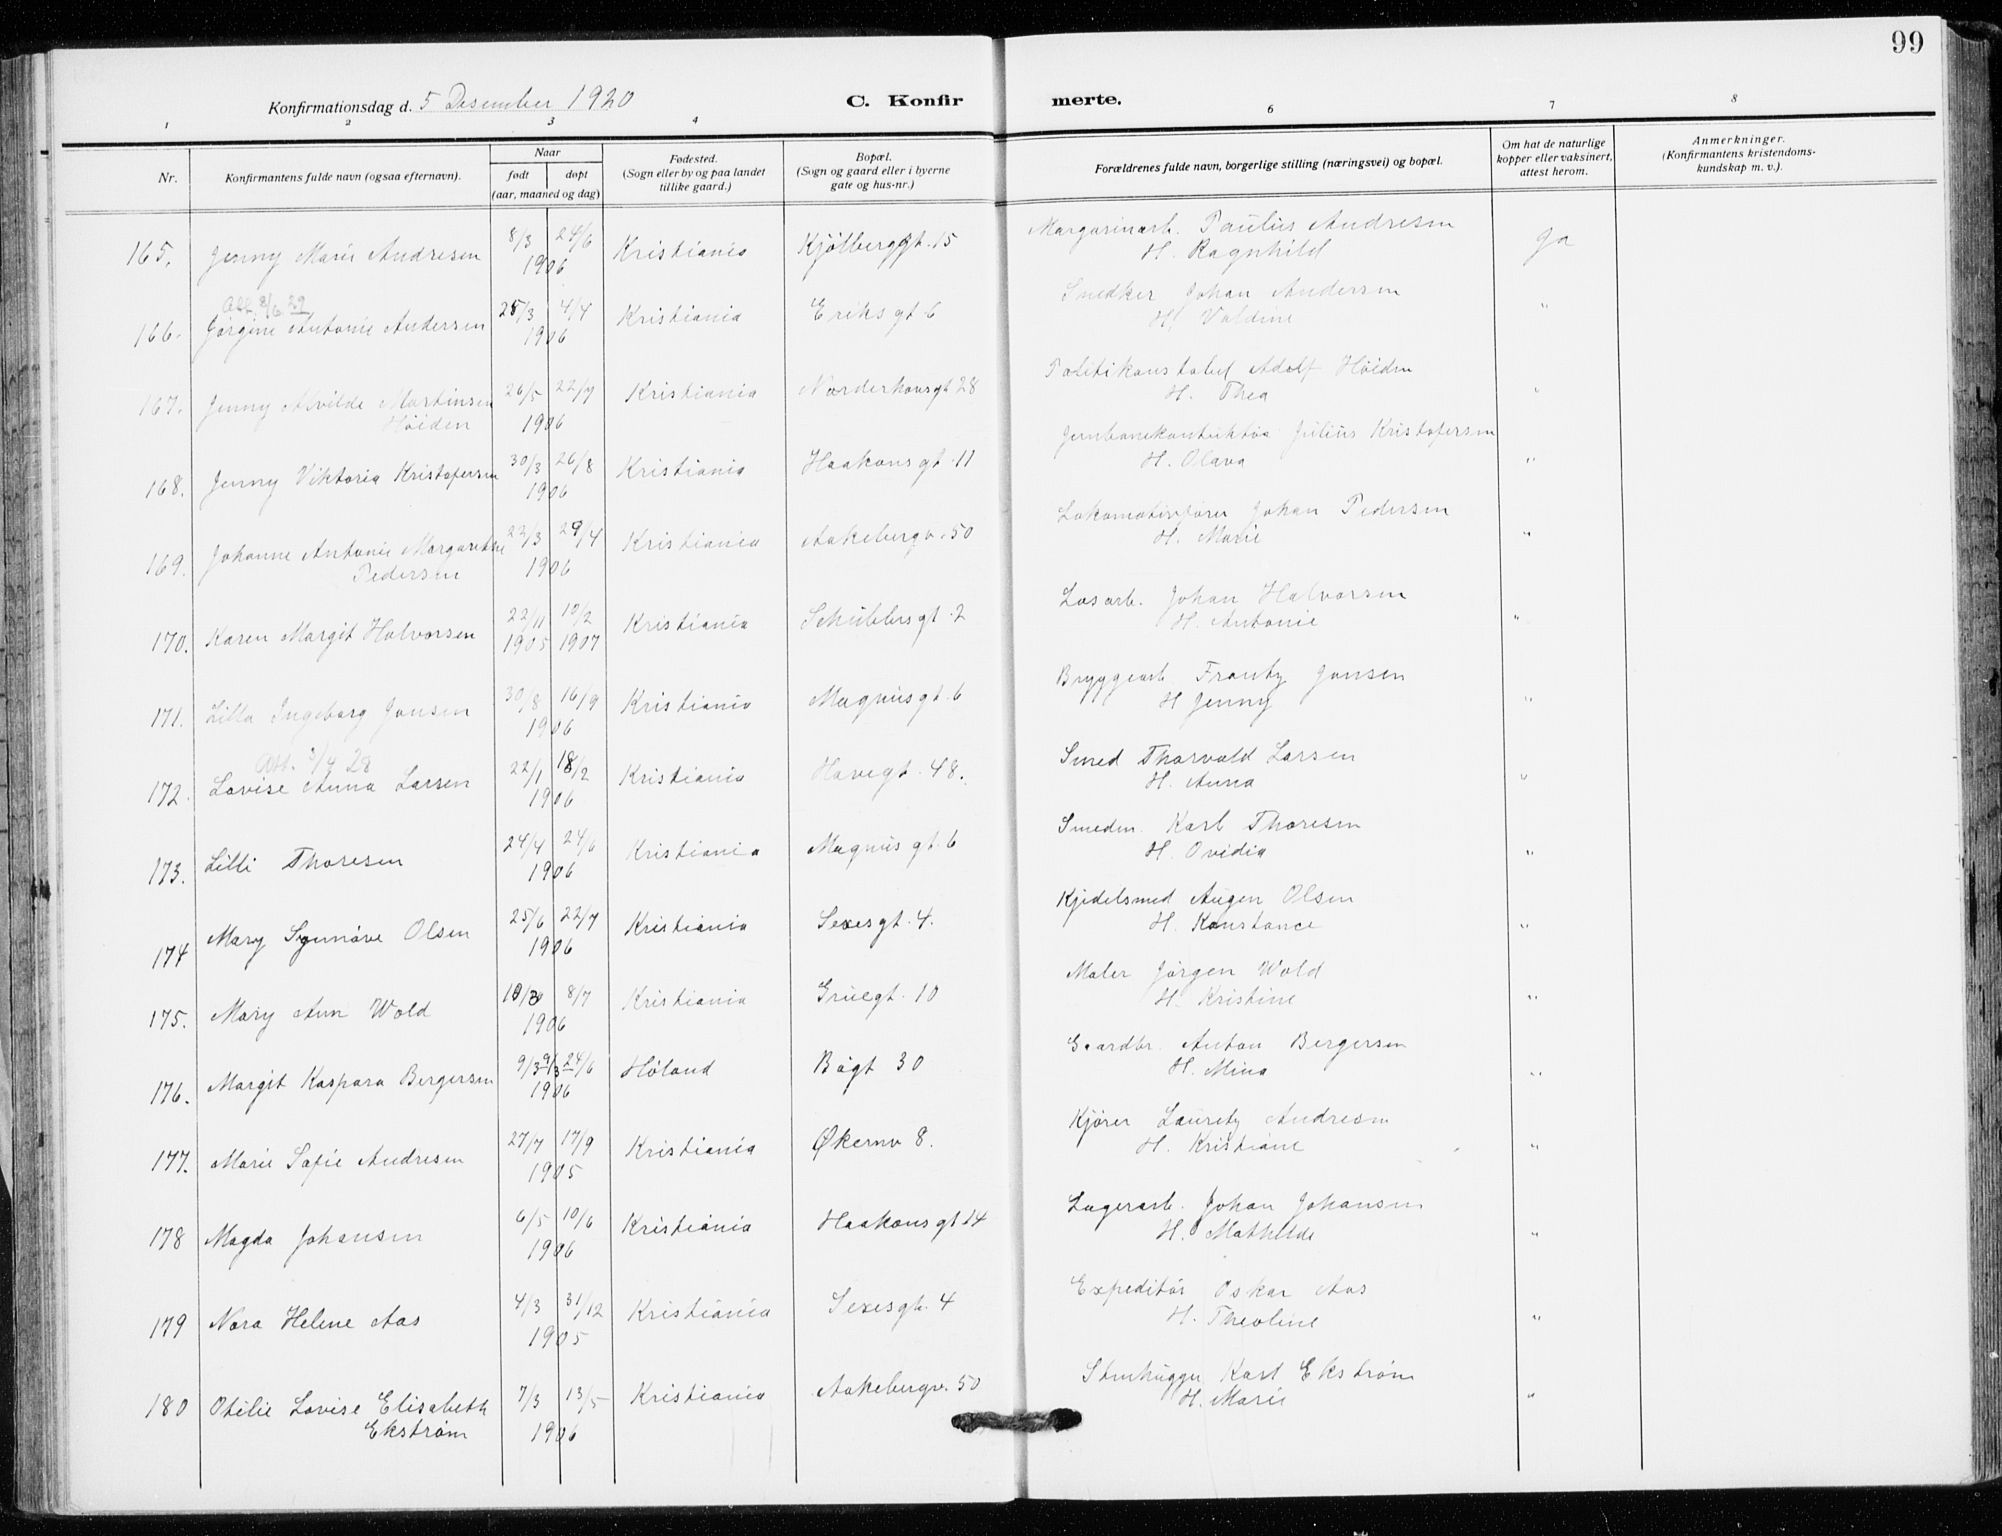 99
Konfirmationsdag d. 5 Desember 1920 C. Konfir merte.
1 2 3 4 6 7 8
Nr.
Konfirmantens fulde navn (ogsaa efternavn).
Naar
født døpt
(aar, maaned og dag)
Fødested.
(Sogn eller by og paa landet
tillike gaard.)
Bopæl.
(Sogn og gaard eller i byerne
gate og hus-nr.)
Forældrenes fulde navn, borgerlige stilling (næringsvei) og bopæl.
Om hat de naturlige
kopper eller vaksinert,
attest herom.
Anmerkninger.
(Konfirmantens kristendoms-
kundskap m. v.).
165. Jenny Marie Andresen 8/3 24/6 1906 Kristiania Kjølberggt. 15 Margarinarb. Paulus Andresen
H. Ragnhild ja
Att 8/6 29
166. Jørgine Antonie Andersen 25/3 4/4 1906 Kristiania Eriks gt 6 Snedker Johan Andersen
H. Valdine "
167. Jenny Alvilde Martinsen 26/5 22/7 Kristiania Norderhovsgt 28 Politikonstabel Adolf Høiden
Høiden 1906 H. Thea "
168. Jenny Viktoria Kristofersen 30/3 26/8 1906 Kristiania Haakons gt. 11 Jernbanekonduktør Julius Kristofersen
H. Olava "
169. Johanne Antonie Margarethe 22/3 29/4 Kristiania Aakebergv. 50 Lokomotivfører Johan Pedersen
Pedersen 1906 H. Marie "
170. Karen Margit Halvorsen 22/11 1905 10/2 1907 Kristiania Schübelers gt. 2 Løsarb. Johan Halvorsen
H. Antonie "
171. Lilla Ingeborg Jonsen 30/8 16/9 1906 Kristiania Magnus gt. 6 Bryggearb. Frantz Jonsen
H Jenny "
Att. 3/4 28
172. Lovise Anna Larsen 22/1 18/2 1906 Kristiania Havegt. 48. Smed Thorvald Larsen
H. Anna "
173. Lilli Thoresen 24/4 24/6 1906 Kristiania Magnus gt. 6 Smedm. Karl Thoresen
H. Ovidia "
174 Mary Synnøve Olsen 25/6 22/7 1906 Kristiania Sexesgt. 4. Kjedelsmed Augen Olsen
H. Konstance "
175. Mary Ann Wold 8/7 1906 Kristiania Gruegt. 10 Maler Jørgen Wold
H. Kristine "
176. Margit Kaspara Bergersen 9/3 9/3 24/6 1906 Høland Bøgt 30 Gaardbr. Anton Bergersen
H. Mina "
177. Marie Sofie Andresen 27/7 17/9 1905 Kristiania Økernv 8. Kjører Lauretz Andresen
H. Kristiane "
178 Magda Johansen 6/5 10/6 1906 Kristiania Haakons gt 14 Lagerarb. Johan Johansen
H. Mathilde "
179 Nora Helene Aas 4/3 31/12 1905 Kristiania Sexesgt. 4 Expeditør Oskar Aas
H. Theoline "
180 Otilie Lovise Elisabeth 7/3 13/5 Kristiania Aakebergv. 50 Stenhugger Karl Ekstrøm
Ekstrøm 1906 H. Marie "